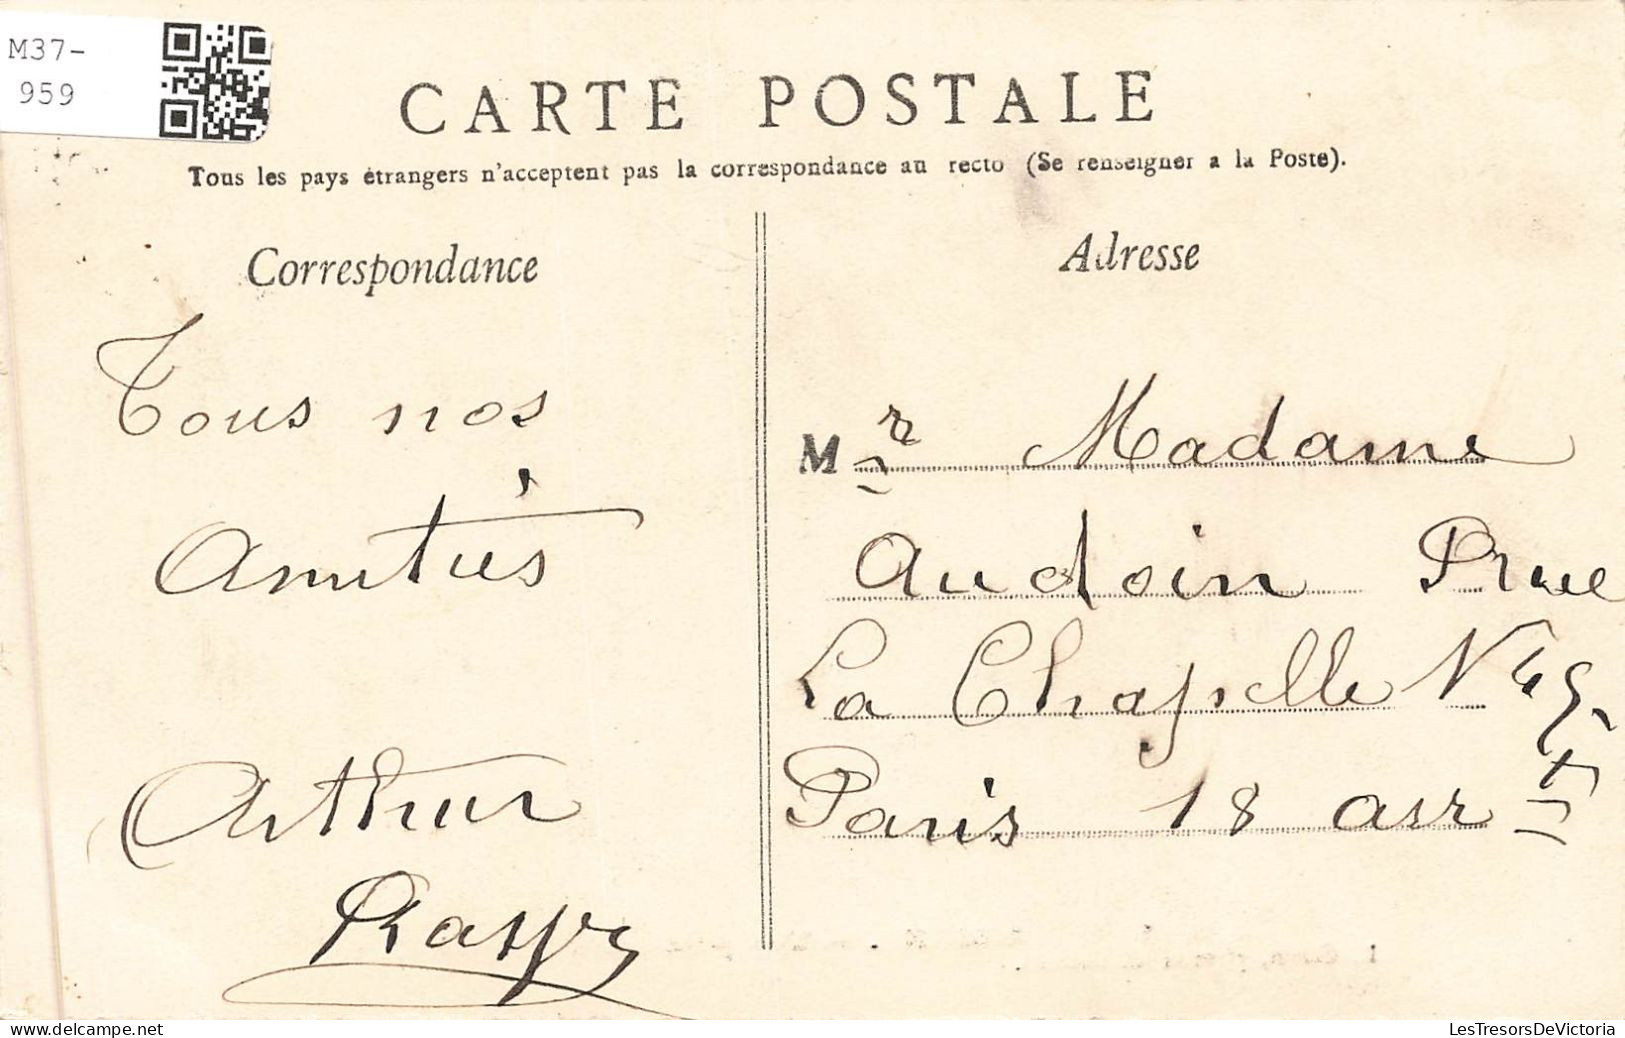 M37-
959
CARTE POSTALE
Tous les pays étrangers n'acceptent pas la correspondance au recto (Se renseigner a la Poste).
Correspondance
Tous nos
Amitiés
Arthur
Adresse
Mr Madame
Audoin Rue
La Chapelle N
Paris 18 arrt
LesTresorsDeVictoria
www.delcampe.net